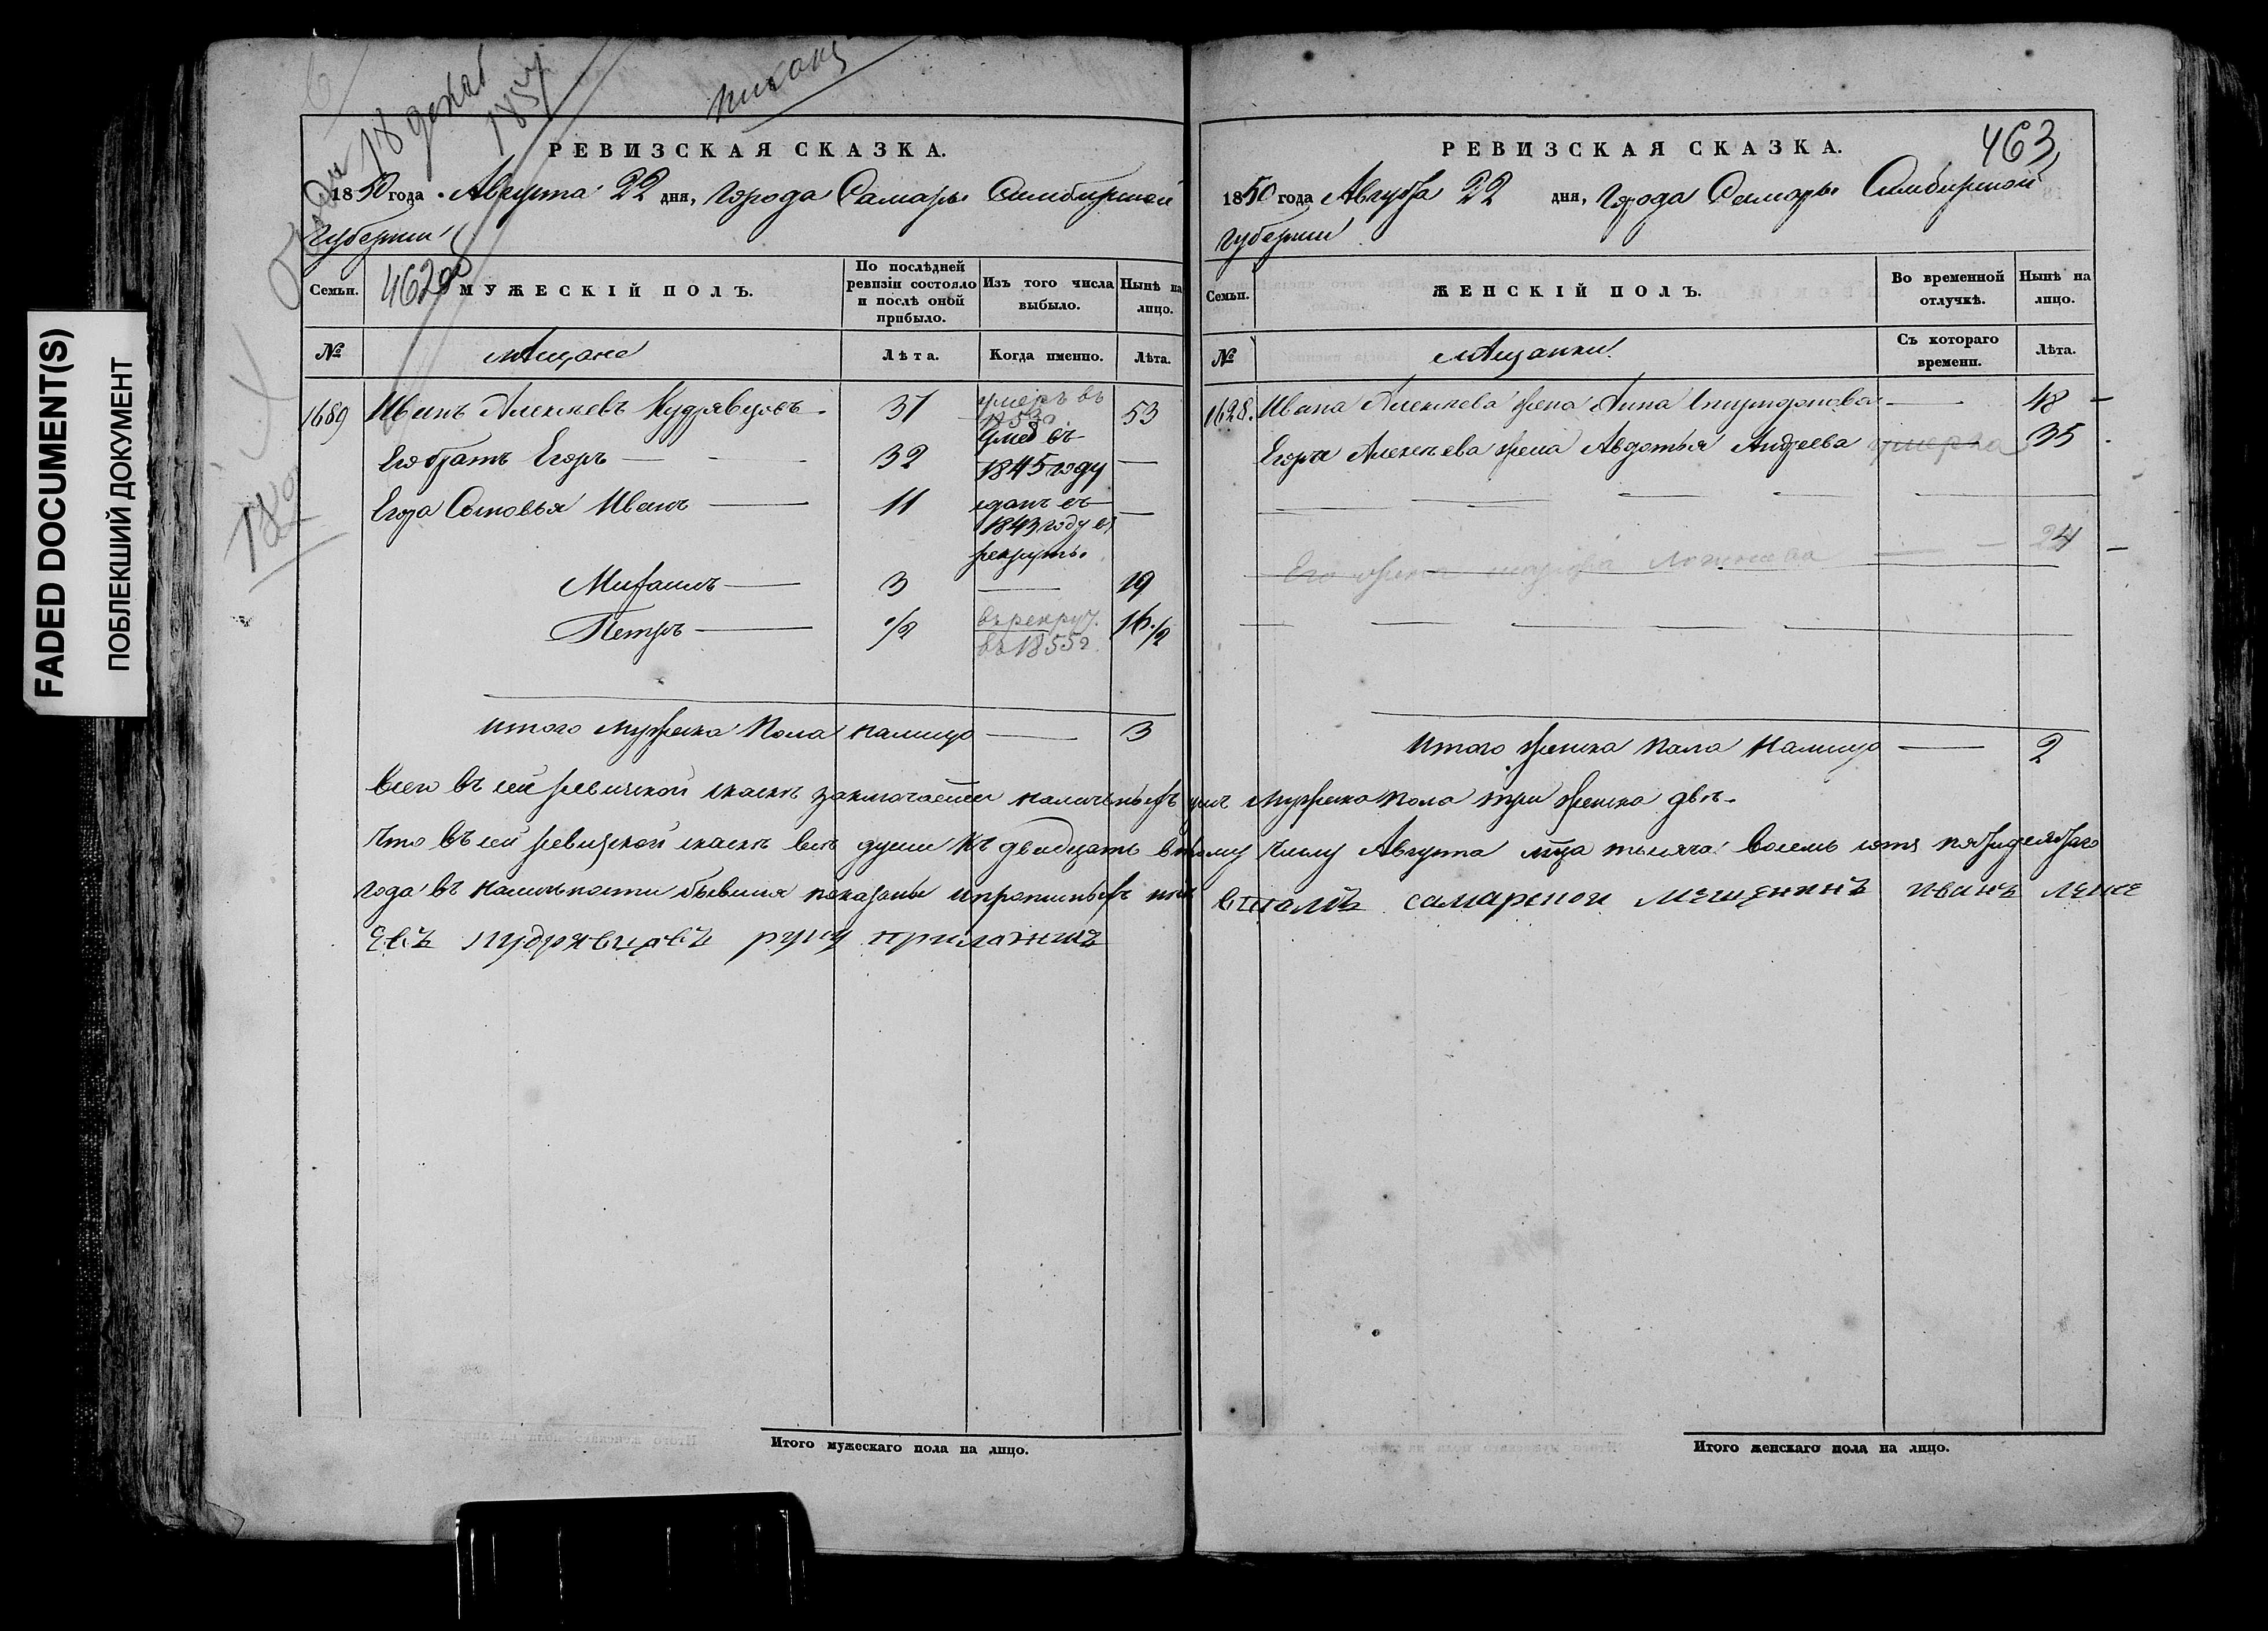 FADED DOCUMENT(S)
ПОБЛЕКШИЙ ДОКУМЕНТ
18
1857
РЕВИЗСКАЯ СКАЗКА.
1850 года Августа 22 дня, Города Самары Симбирской
Губернии
Семьи.
462 об
МУЖЕСКІЙ ПОЛЪ.
По послѣдней ревизіи состояло и послѣ оной прибыло.
Изъ того числа выбыло.
Нынѣ на лицо.
№
мѣщане
Лѣта.
Когда именно.
Лѣта.
1689 Иванъ Алексѣевъ Кудрявцовъ 37 умеръ въ 53
Его братъ Егоръ — 32 умеръ въ 1845 году —
Егора Сыновья Иванъ — 11 зданъ въ 1843 году въ рекруты. —
Михаилъ — 3 — 19
Петръ — 1/2 въ рекрут. въ 1855 г. 16 1/2
Итого Мужеска Пола налицо — 3
РЕВИЗСКАЯ СКАЗКА.
463
1850 года Августа 22 дня, Города Самары Симбирской
Губернии
Семьи.
ЖЕНСКІЙ ПОЛЪ.
Во временной отлучкѣ.
Нынѣ на лицо.
№
мѣщанки
Съ котораго времени.
Лѣта.
1628. Ивана Алексѣева жена Анна — 48
Егора Алексѣева жена Авдотья Андреева умерла 35
Его жена 24
Итого женска пола налицо — 2
Всего въ сей ревизской сказкѣ заключается наличныхъ душъ Мужеска пола три женска двѣ.
Что въ сей ревизской сказкѣ всѣ души къ двадцать второму числу Августа мца тысяча восемь сотъ пятидесятаго
года въ наличности бывшия показаны и прописныхъ нѣтъ въ томъ самарской мещенинъ иванъ лексе
евъ кудрявцавъ руку приложилъ
Итого мужескаго пола на лицо.
Итого женскаго пола на лицо.